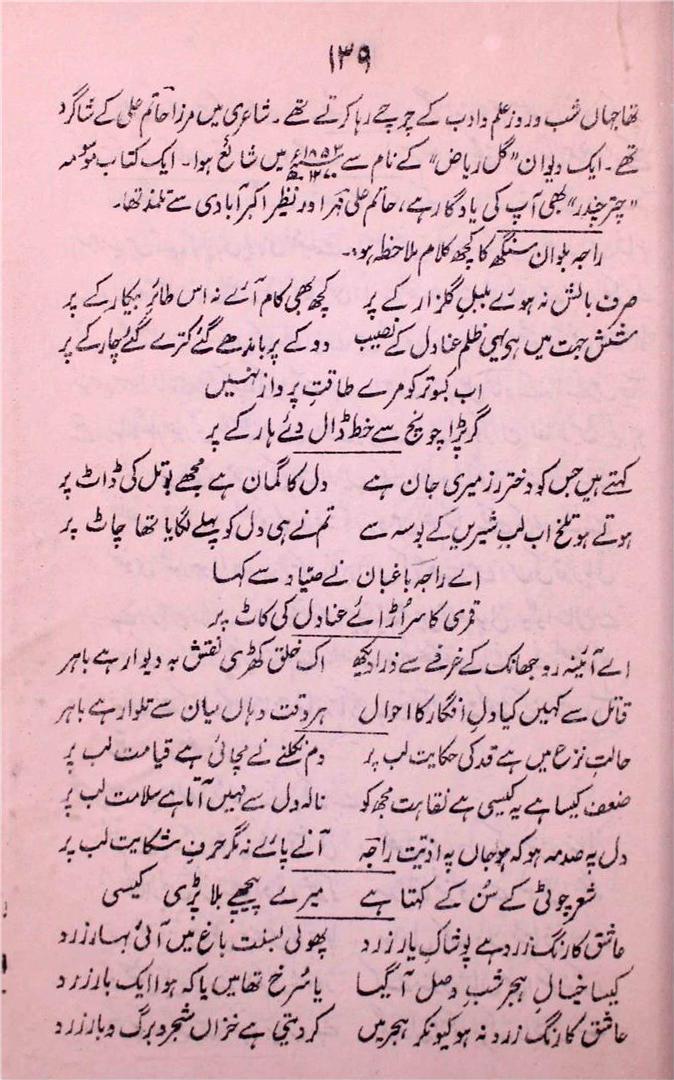 ۱۳۹
تھا جہاں شب و روز علم و ادب کے چرچے رہا کرتے تھے ۔ شاعری میں مرزا حاتم علی کے شاگرد
تھے ۔ ایک دیوان "گل ریاض" کے نام سے ۱۸۵۲ء ۱۲۷۰ھ میں شائع ہوا ۔ ایک کتاب موسومہ
"چتر چندر" بھی آپ کی یادگار ہے، حاتم علی قہر اور نظر اکبرآبادی سے تلمذ تھا۔
راجہ بلوان سنگھ کا کچھ کلام ملاحظہ ہو:۔
صرف بالش نہ ہوئے بلبلِ گلزار کے پر    کچھ بھی کام آئے نہ اس طائرِ بیکار کے پر
شش جہت میں ہی یہی ظلم عنادل کے نصیب    دو کے پر باندھے گئے کترے گئے چار کے پر
اب کبوتر کو مرے طاقتِ پرواز نہیں
گر پڑا چونچ سے خط ڈال دئے ہار کے پر
کہتے ہیں جس کو دخترِ رز میری جان ہے    دل کا گمان ہے مجھے بوتل کی ڈاٹ پر
ہوتے ہو تلخ اب لبِ شیریں کے بوسہ سے    تم نے ہی دل کو پہلے لگایا تھا چاٹ پر
اے راجہ باغبان نے صیّاد سے کہا
قمری کا سر اڑائے عنادل کی کاٹ پر
اے آئینہ رو جھانک کے غرفے سے ذرا دیکھ    اک خلق کھڑی نقش بہ دیوار ہے باہر
قاتل سے کہیں کیا دلِ افگار کا احوال    ہر وقت وہاں میان سے تلوار ہے باہر
حالتِ نزع میں ہے قد کی حکایت لب پر    دم نکلنے نے مچائی ہے قیامت لب پر
ضعف کیسا ہے یہ کیسی ہے نقاہت مجھ کو    نالہ دل سے نہیں آتا ہے سلامت لب پر
دل پہ صدمہ ہو کہ ہو جاں پہ اذیت راجہ    آنے پائے نہ مگر حرفِ شکایت لب پر
شعر چوٹی کے سُن کے کہتا ہے    میرے پیچھے بلا پڑی کیسی
عاشق کا رنگ زرد ہے پوشاکِ یار زرد    پھولی بسنت باغ میں آئی بہار زرد
کیسا خیالِ ہجر شبِ وصل آ گیا    یا سرخ تھا میں یا کہ ہوا ایک بار زرد
عاشق کا رنگ زرد نہ ہو کیونکر ہجر میں    کر دیتی ہے خزاں شجر و برگ و بار زرد